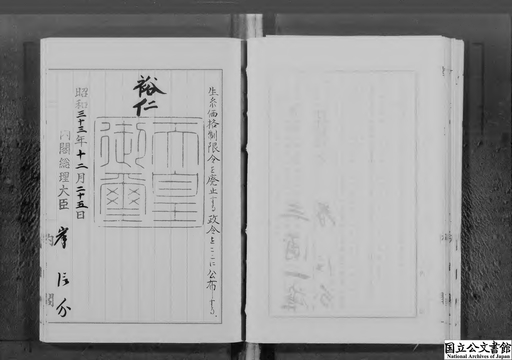 生糸価格制限令を廃止する政令をここに公布する。
裕仁
天皇
御璽
昭和三十三年十二月二十五日
内閣総理大臣 岸信介
内閣
国立公文書館
National Archives of Japan